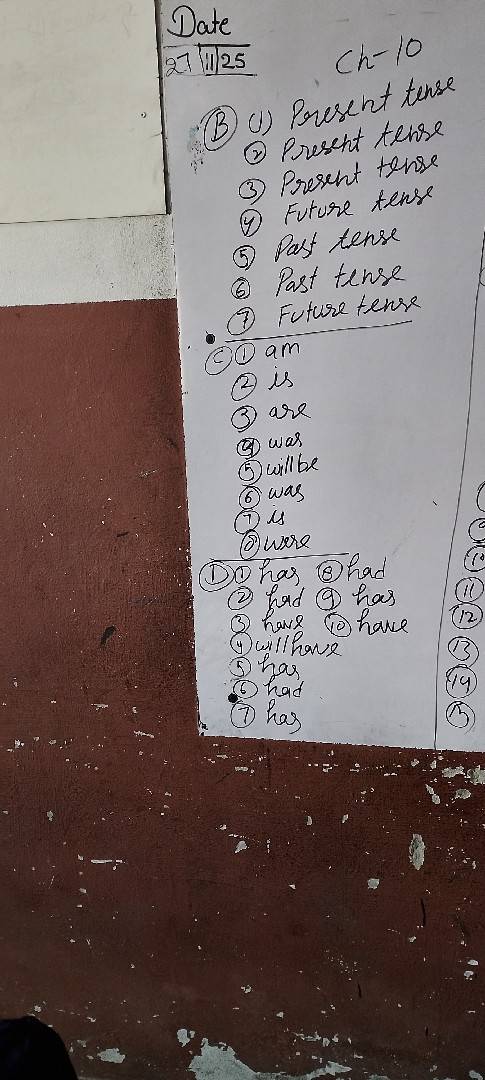 Date
27/11/25
Ch-10
(B) (1) Present tense
(2) Present tense
(3) Present tense
(4) Future tense
(5) Past tense
(6) Past tense
(7) Future tense
(C) (1) am
(2) is
(3) are
(4) was
(5) will be
(6) was
(7) is
(8) were
(D) (1) has (8) had
(2) had (9) has
(3) have (10) have
(4) will have
(5) has
(6) had
(7) has
(11)
(12)
(13)
(14)